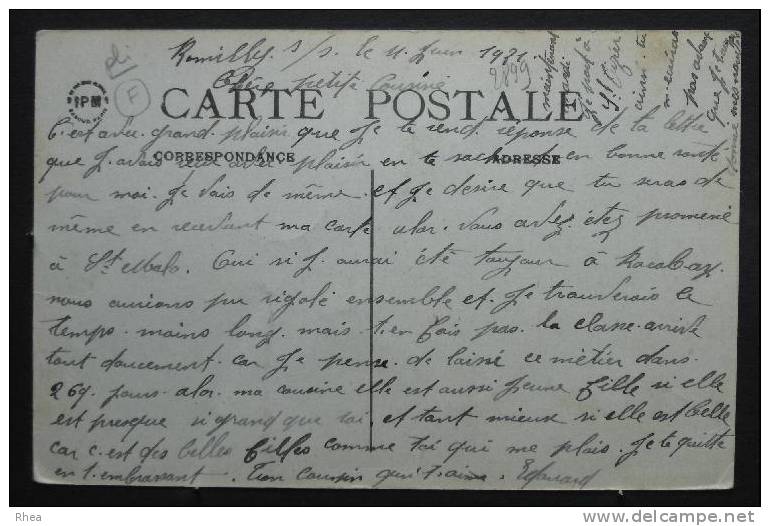 Romilly s/s. le 11 juin 1921
Chère petite cousine
2899
IPM
CARTE POSTALE
C'est avec grand plaisir que je te rend réponse de ta lettre
CORRESPONDANCE
ADRESSE
que j'avais reçu avec plaisir en te sachant en bonne santé
pour moi. je vais de même. et je désire que tu seras de
même en recevant ma carte alor. vous avez étez promené
à St. Malo. Oui si j'aurai été toujour à
nous aurions pu rigolé ensemble et je trouverais le
temps. moins long. mais t'en fais pas. la classe arrive
tout doucement. car je pense. de laissé ce métier dans
269. jours. alor. ma cousine elle est aussi jeune fille si elle
est presque si grand que toi. et tant mieux si elle est belle
car c'est des belles filles comme toi qui me plais. Je te quitte
en t'embrassant. Ton cousin qui t'aime. Edouard
maintenant
je suis à
St.
ainsi tu
m'
pas
que je
F
Rhea
http://www.delcampe.net